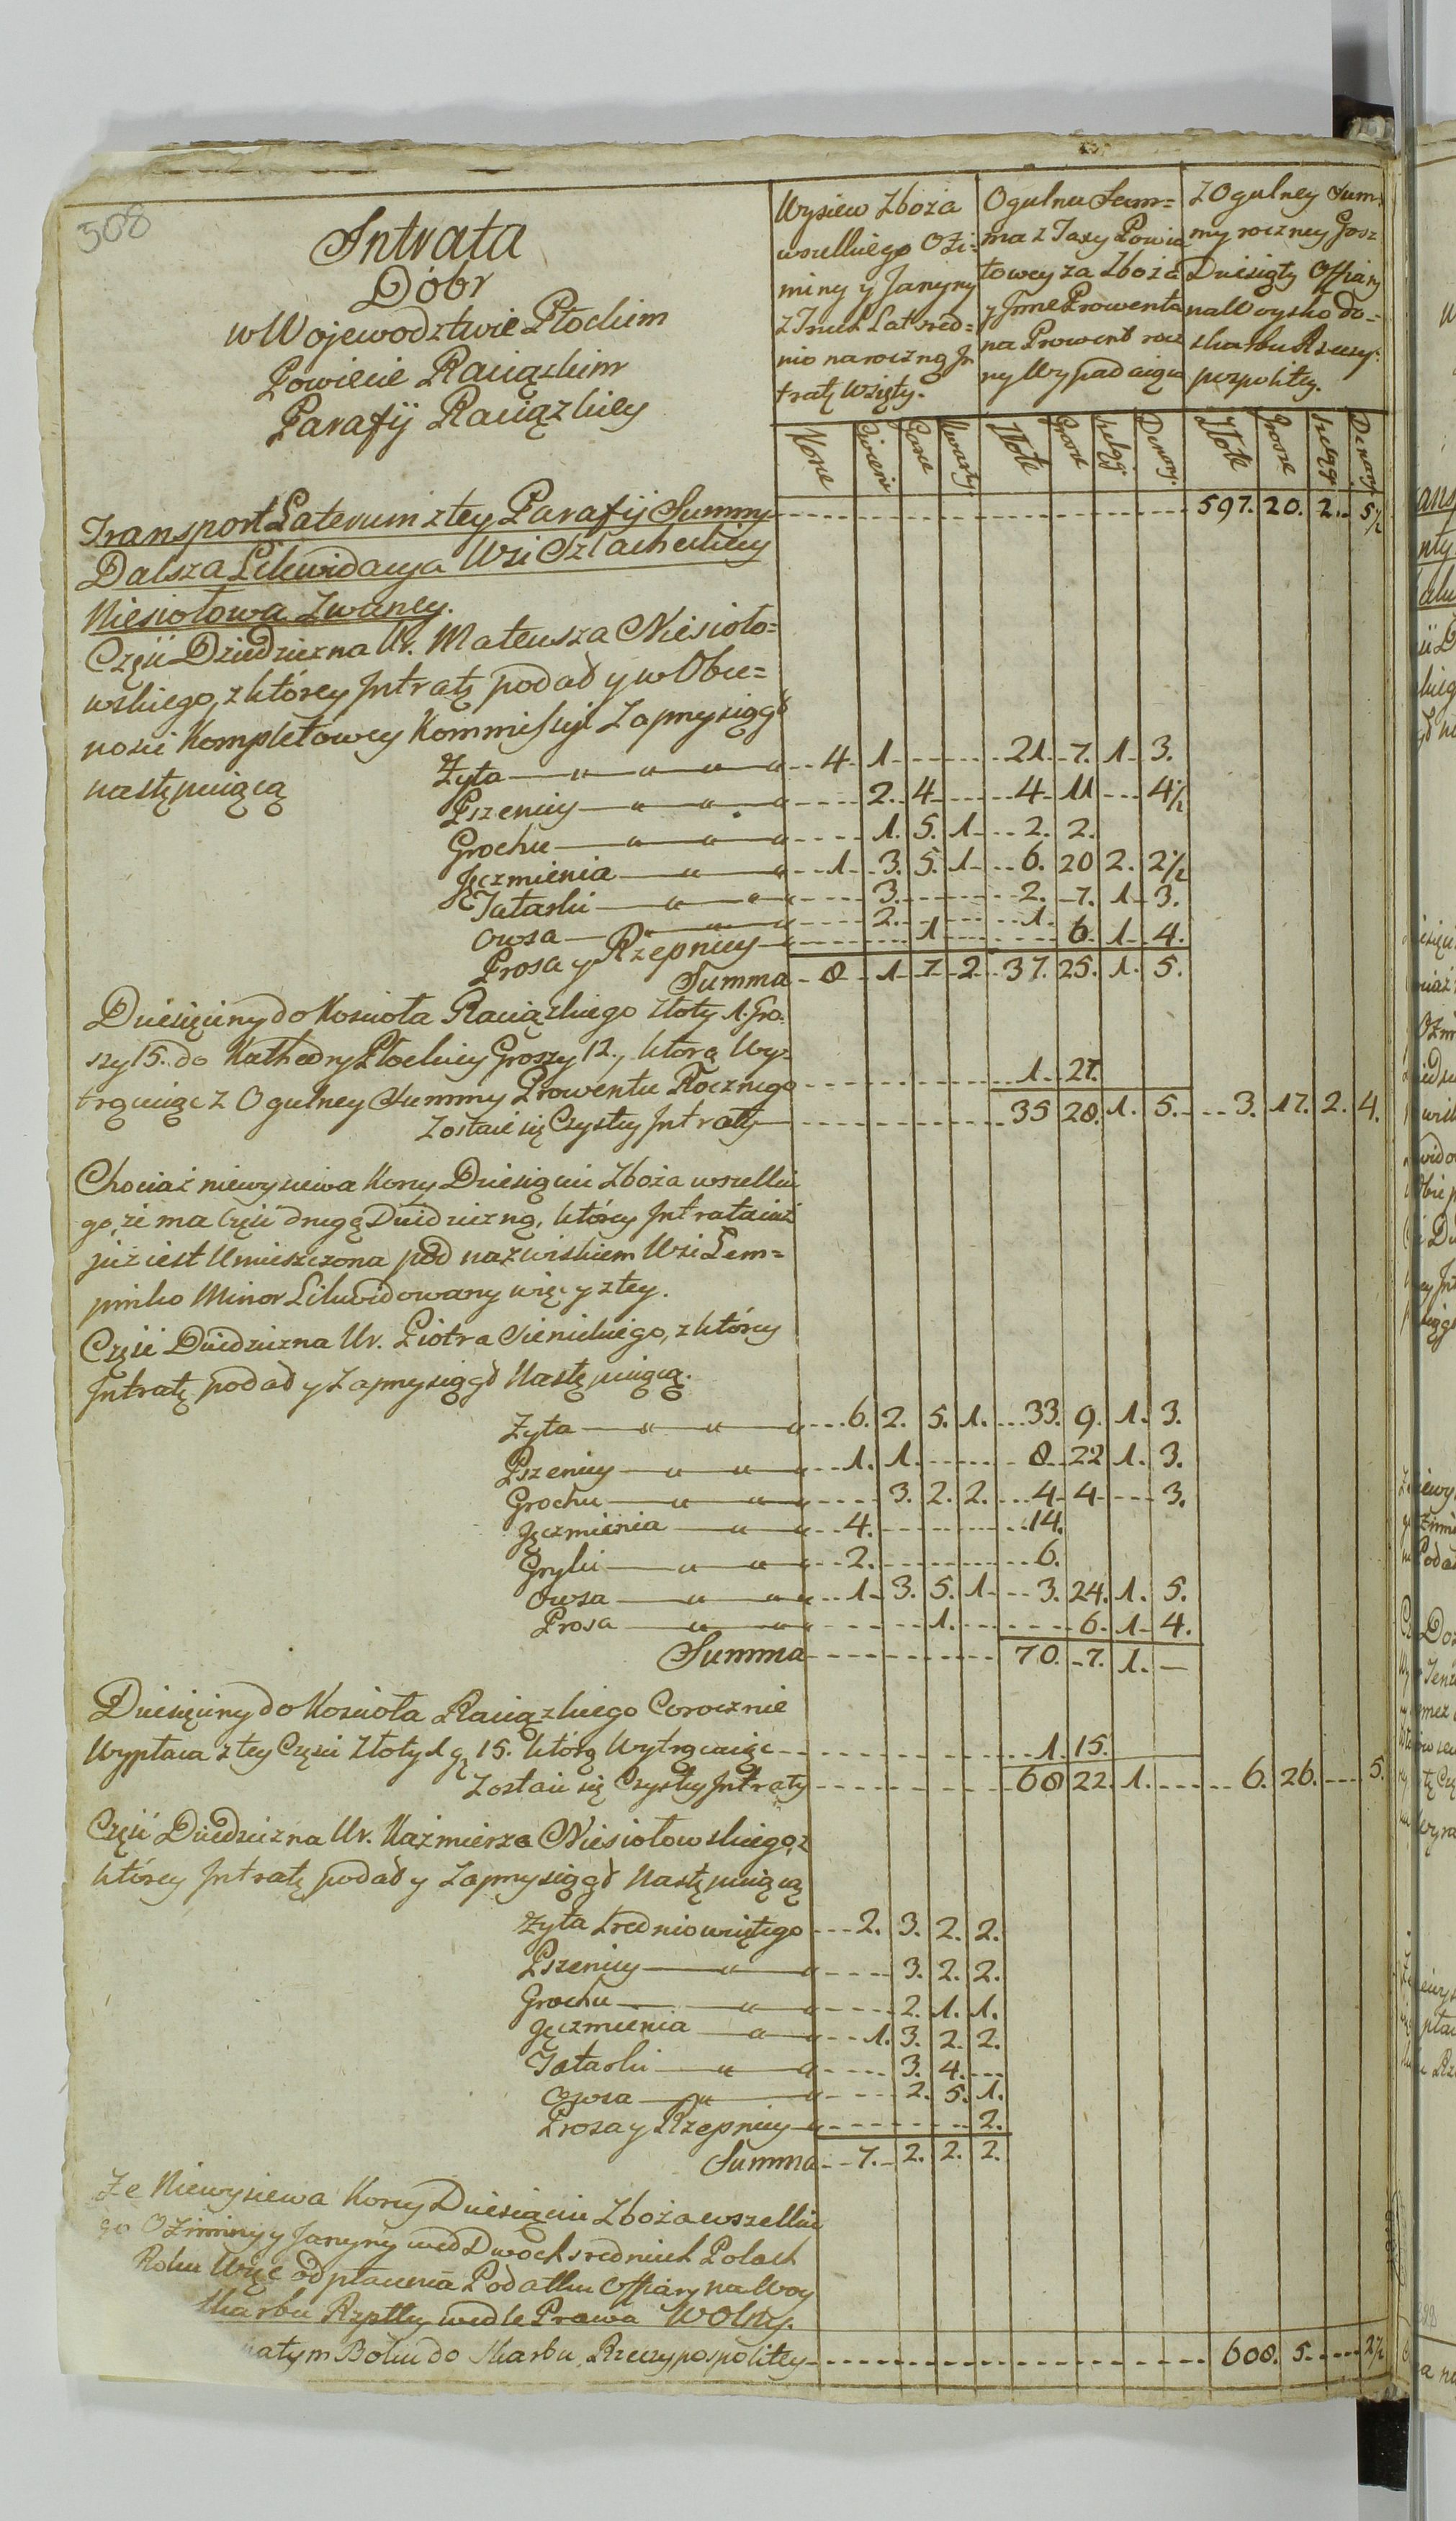 508
Intrata
Dóbr
w Wojewodztwie Płockim
Powiecie Raciązkim
Parafij Raciązkiey
Wysiew Zboża
wszelkiego Ozi=
miny y Jarzyny
z Trzech Lat sred=
nio na roczną In
tratę Wzięty.
Ogulna Sum=
ma z Taxy Powia
towey za Zboża
y Jnne Prowenta
na Prowent rocz
ny Wypadaiąca
Z Ogulney Sum
my roczney Grosz
Dziesiąty Offiary
na Woysko do=
skarbu Rzeczy
pospolitey.
Korce Cwierci Garce Kwarty Złote Grosze Szelągi Denary Złote Grosze Szelągi Denary
Transport Laterum z tey Parafij Summy 597. 20. 2. 5½
Dalsza Likwidacya Wsi Szlacheckiey
Niesiołowa Zwaney.
Częśi Dziedziczna Ur. Mateusza Niesioło=
wskiego, z którey Jntratę podał y w Obec=
nosci Kompletowey Kommissyi Zaprzysiągł
następuiącą
Żyta 4. 1. 21. 7. 1. 3.
Pszenicy 2. 4. 4. 11 4½
Grochu 1. 5. 1. 2. 2.
Jęczmienia 1. 3. 5. 1. 6. 20 2. 2½
Tatarki 3. 2. 7. 1. 3.
Owsa 2. 1.
Prosa y Rzepnicy 1 6. 1. 4.
Summa 8 1. 7. 2. 37. 25. 1. 5.
Dziesięciny do Koscioła Raciązkiego Złoty 1. Gro.
szy 15. do Kathedry Płockiey Groszy 12., którą Wy=
trąciwszy z Ogulney Summy Prowentu Rocznego 1. 27.
Zostaie się Czystey Jntraty 35 28. 1. 5. 3. 17. 2. 4.
Chociaż niewysiewa Korcy Dziesięciu Zboża wszelkie
go, że ma Część drugą Dziedziczną, którey Jntrata iuż
już iest Umieszczona pod nazwiskiem Wsi Łem=
pinko Minor Likwidowany więc y z tey.
Częśi Dziedziczna Ur. Piotra Sienickiego, z którey
Jntratę podał y Zaprzysiągł Następuiącą.
Żyta 6. 2. 5. 1. 33. 9. 1. 3.
Pszenicy 1. 1. 8. 22 1. 3.
Grochu 3. 2. 2. 4. 4. 3.
Jęczmienia 4. 14.
Gryki 2. 6.
Owsa 1. 3. 5. 1. 3. 24. 1. 5.
Prosa 1. 6. 1. 4.
Summa 70. 7. 1. —
Dziesięciny do Koscioła Raciązkiego Corocznie
Wypłaca z tey Częsci Złoty 1 g 15. którą Wytrąciwszy 1. 15.
Zostaie się Czystey Jntraty 68 22. 1. 6. 26. 5.
Częśi Dziedziczna Ur. Kazmierza Niesiołowskiego, z
którey Jntratę podał y Zaprzysiągł Następuiącą
Zyta sredniowziętego 2. 3. 2. 2.
Pszenicy 3. 2. 2.
Grochu 2. 1. 1.
Jęczmienia 1. 3. 2. 2.
Tatarki 3. 4.
Owsa 2. 5. 1.
Prosa y Rzepnicy 2.
Summa 7. 2. 2. 2.
Ze Niewysiewa Korcy Dziesięciu Zboża wszelkie
go Oziminy y Jarzyny wed Dwoch srednich Polach
Roku Więc od płacenia Podatku Offiary na Woy
Skarbu Rzptty wedle Prawa Wolny.
natym Boku do Skarbu Rzeczypospolitey 608. 5. 2½